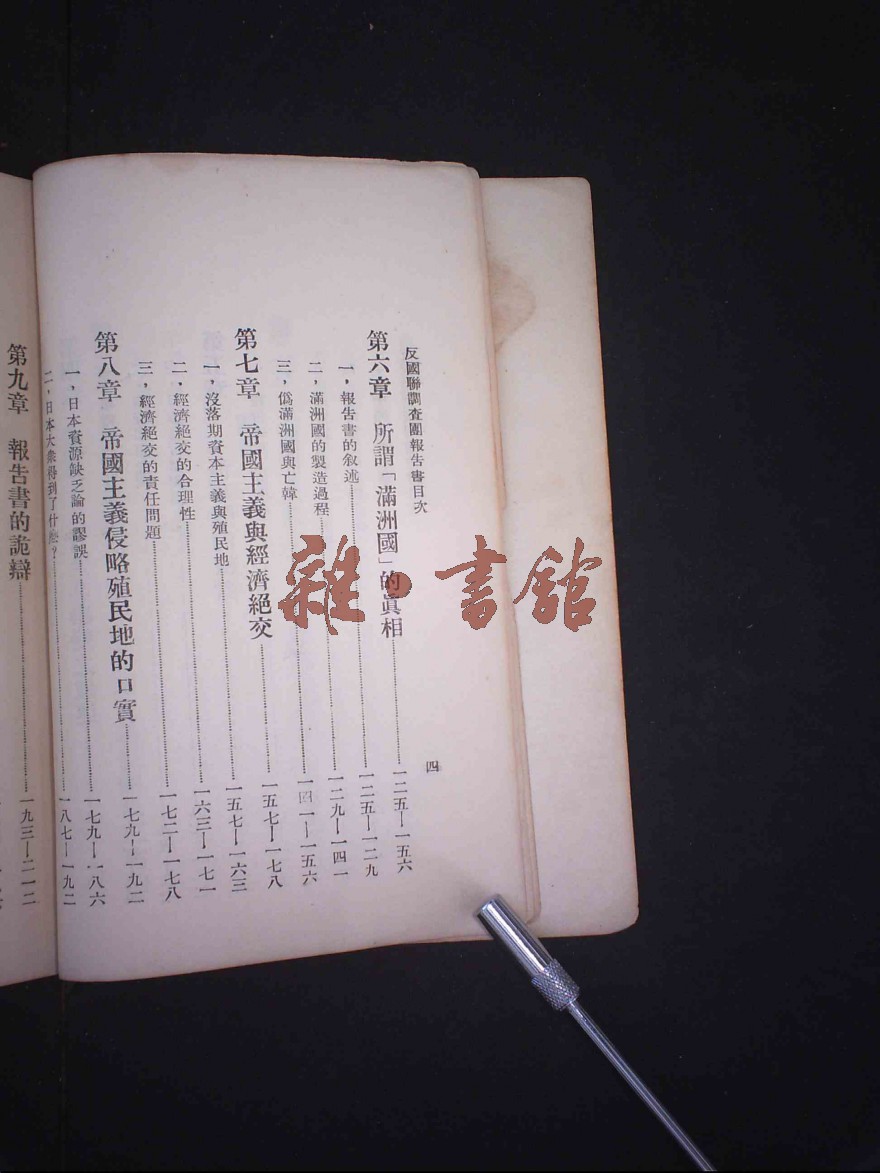 反國聯調查團報告書目次
四
第六章 所謂「滿洲國」的眞相……一二五—一五六
一，報告書的叙述……一二五—一二九
二，滿洲國的製造過程……一二九—一四一
三，僞滿洲國與亡韓……一四一—一五六
第七章 帝國主義與經濟絕交……一五七—一七八
一，沒落期資本主義與殖民地……一五七—一六三
二，經濟絕交的合理性……一六三—一七一
三，經濟絕交的責任問題……一七二—一七八
第八章 帝國主義侵略殖民地的口實……一七九—一九二
一，日本資源缺乏論的謬誤……一七九—一八六
二，日本大衆得到了什麽？……一八七—一九二
第九章 報告書的詭辯……一九三—二一二
雜·書館